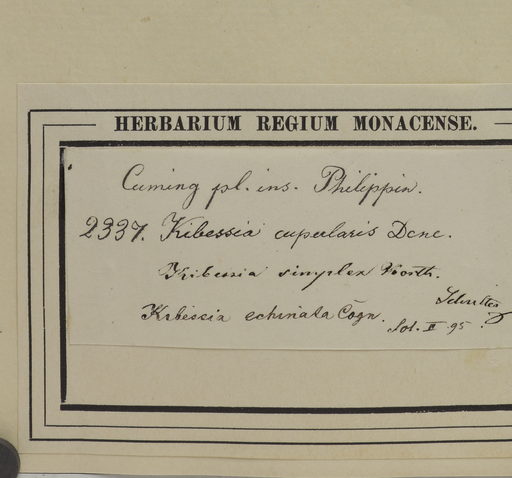 HERBARIUM REGIUM MONACENSE.
Cuming pl. ins. Philippin.
2337. Kibessia cupularis Dcne.
Kibessia simplex Korth.
Kibessia echinata Cogn.
Sol. II 95.